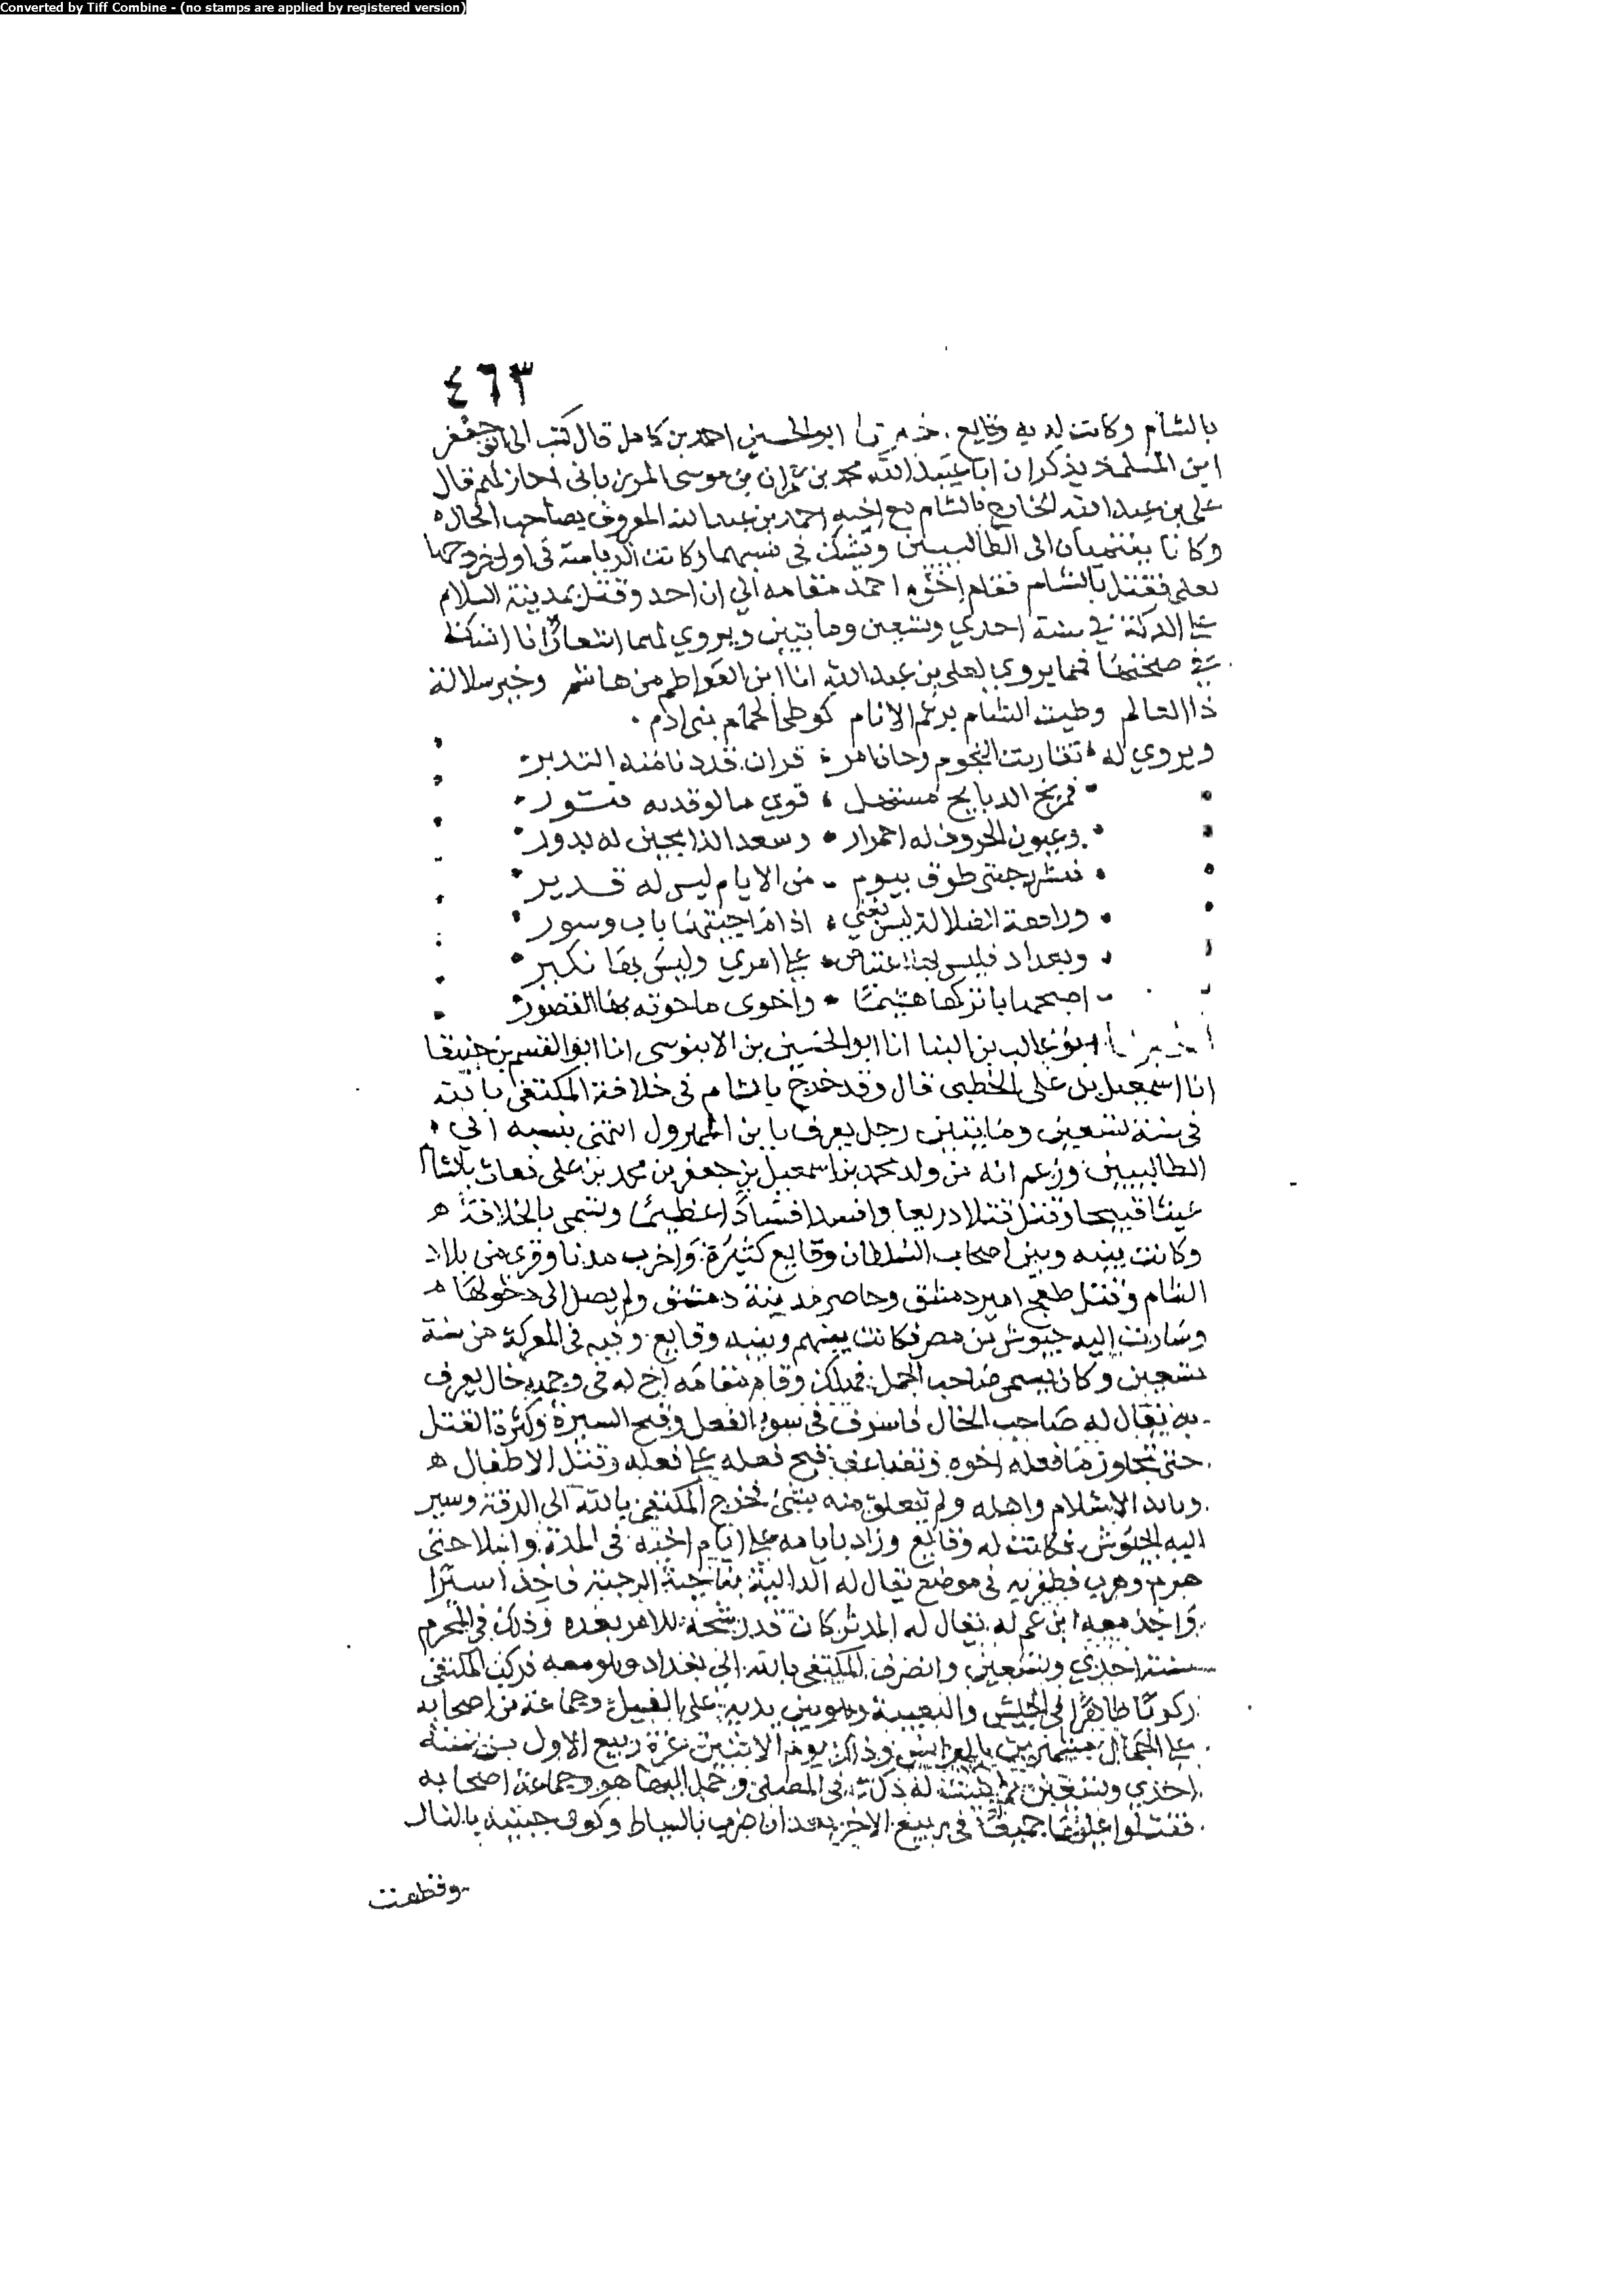 Converted by Tiff Combine - (no stamps are applied by registered version)
٤٦٣
بالشام وكانت له به وقايع . اخبرنا ابو الحسين احمد بن كامل قال كتب الى ابو جعفر
ابن المسلمة يذكر ان ابا عبيد الله محمد بن عمران بن موسى المرزبانى اجاز لهم قال
على بن عبد الله الخارج بالشام مع اخيه احمد بن عبد الله المعروف بصاحب الخال ه
وكانا ينتميان الى الطالبيين ويشك فى نسبهما وكانت الرياسة فى اول خروجهما
لعلى فقتل بالشام فقام اخوه احمد مقامه الي ان اخذ وقتل بمدينة السلام
على الدكة في سنة احدي وتسعين ومايتين ويروي لهما اشعار انا اشك
في صحتها فمما يروي لعلى بن عبد الله انا ابن الفواطم من هاشم وخير سلالة
ذا العالم وطيت الشام برغم الانام كوطى الحمام بنى ادم .
ويروي له تقاربت النجوم وحان امر قران قد دنا منه التدبر
فمريخ الذبايح مستهل قوي ما لوقدبه
وعيون الحروف له احمرار وسعد الذابحين له بدور
فنشر جنتى طوف بيوم من الايام ليس له قدير
ورافعة الضلالة ليس تغني اذا ما جيتها باب وسور
وبغداد فليس بها اعتياص على امري وليس بها نكير
اصبحها بانزكها هشيما واخوى ما حوته بها القصور
اخبرنا ابو غالب بن البنا انا ابو الحسين بن الابنوسى انا ابو القسم بن جنيقا
انا اسمعيل بن على الخطبى قال وقد خرج بالشام فى خلافة المكتفى بالله
فى سنة تسعين ومايتين رجل يعرف بابن المهزول انتمى بنسبه الي
الطالبيين وزعم انه من ولد محمد بن اسمعيل بن جعفر بن محمد بن على فعاث بالشام
عيثا قبيحا وقتل قتلا ذريعا وافسد افسادا عظيما وتسمى بالخلافة ه
وكانت بينه وبين اصحاب السلطان وقايع كثيرة واخرب مدنا وقرى من بلاد
الشام وقتل طغج امير دمشق وحاصر مدينة دمشق ولم يصل الى دخولها ه
وسارت اليه جيوش من مصر فكانت بينهم وبينه وقايع وفيه فى المعركة من سنة
تسعين وكان يسمى صاحب الجمل فهلك وقام مقامه اخ له فى وجهه خال يعرف
به يقال له صاحب الخال فاسرف فى سوء الفعل وقبح السيرة وكثرة القتل
حتى تجاوز ما فعله اخوه وتضاعف قبح فعله على فعله وقتل الاطفال ه
ونابذ الاسلام واهله ولم يتعلق منه بشئ فخرج المكتفى بالله الى الرقة وسير
اليه الجيوش فكانت له وقايع وزاد بايامه على ايام اخيه فى المدة والبلا حتى
هزم وهرب فظفر به فى موضع يقال له الدالية بناحية الرحبة فاخذ اسيرا
واخذ معه ابن عم له يقال له المدثر كان قد رشحه للامر بعده وذلك فى المحرم
سنة احدي وتسعين وانصرف المكتفى بالله الى بغداد وهو معه فركب المكتفى
ركوبا ظاهرا فى الجيش والتعبية وهو بين يديه على الفيل وجماعة من اصحابه
على الجمال مشهرين بالبرانس وذلك يوم الاثنين غرة ربيع الاول من سنة
احدي وتسعين ثم بنيت له دكة فى المصلى وحمل اليها هو وجماعة اصحابه
فقتلوا عليها جميعا فى ربيع الاخر بعد ان ضرب بالسياط وكوي جبينه بالنار
وقطعت